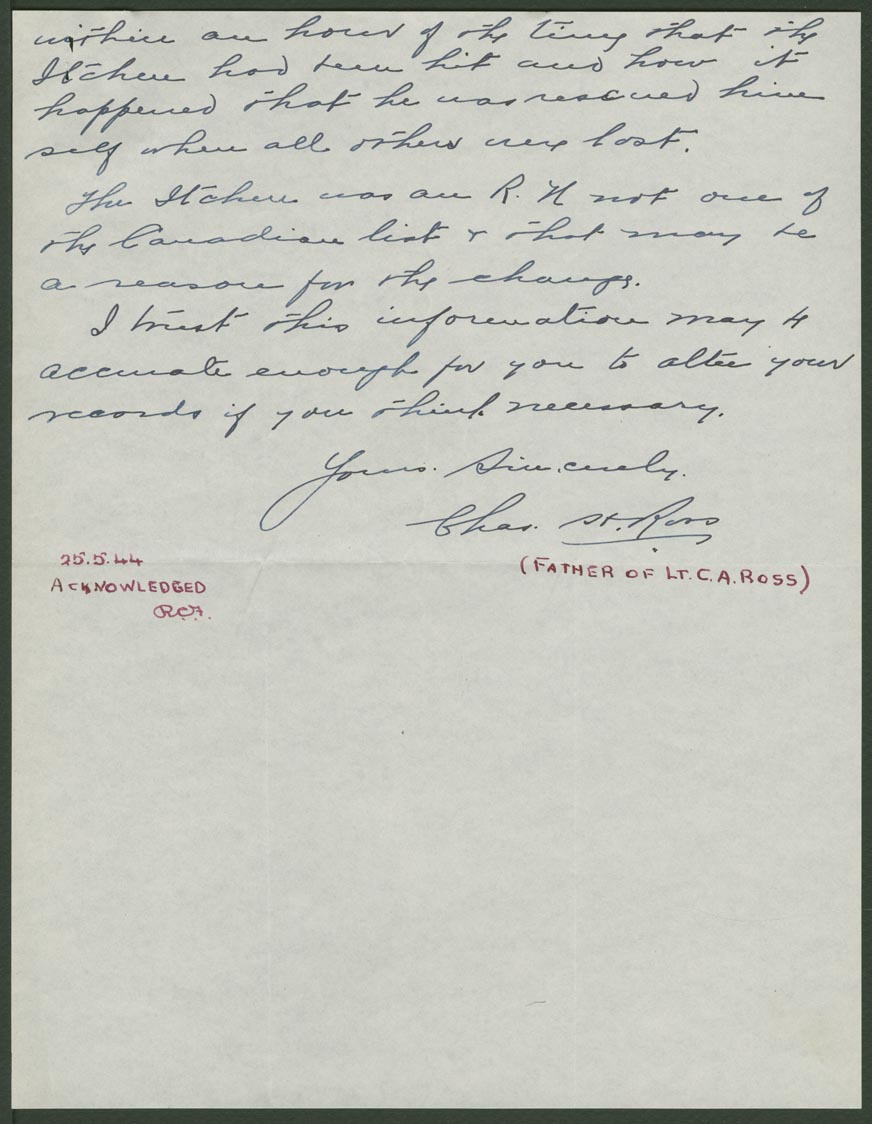 within an hour of the time that the
Itchen had been hit and how it
happened that he was rescued him
self when all others were lost.
The Itchen was an R. N not one of
the Canadian list & that may be
a reason for the change.
I trust this information may
accurate enough for you to alter your
records if you think necessary.
Yours. Sincerely.
Chas. Ross
(FATHER OF LT. C. A. ROSS)
25.5.44
ACKNOWLEDGED